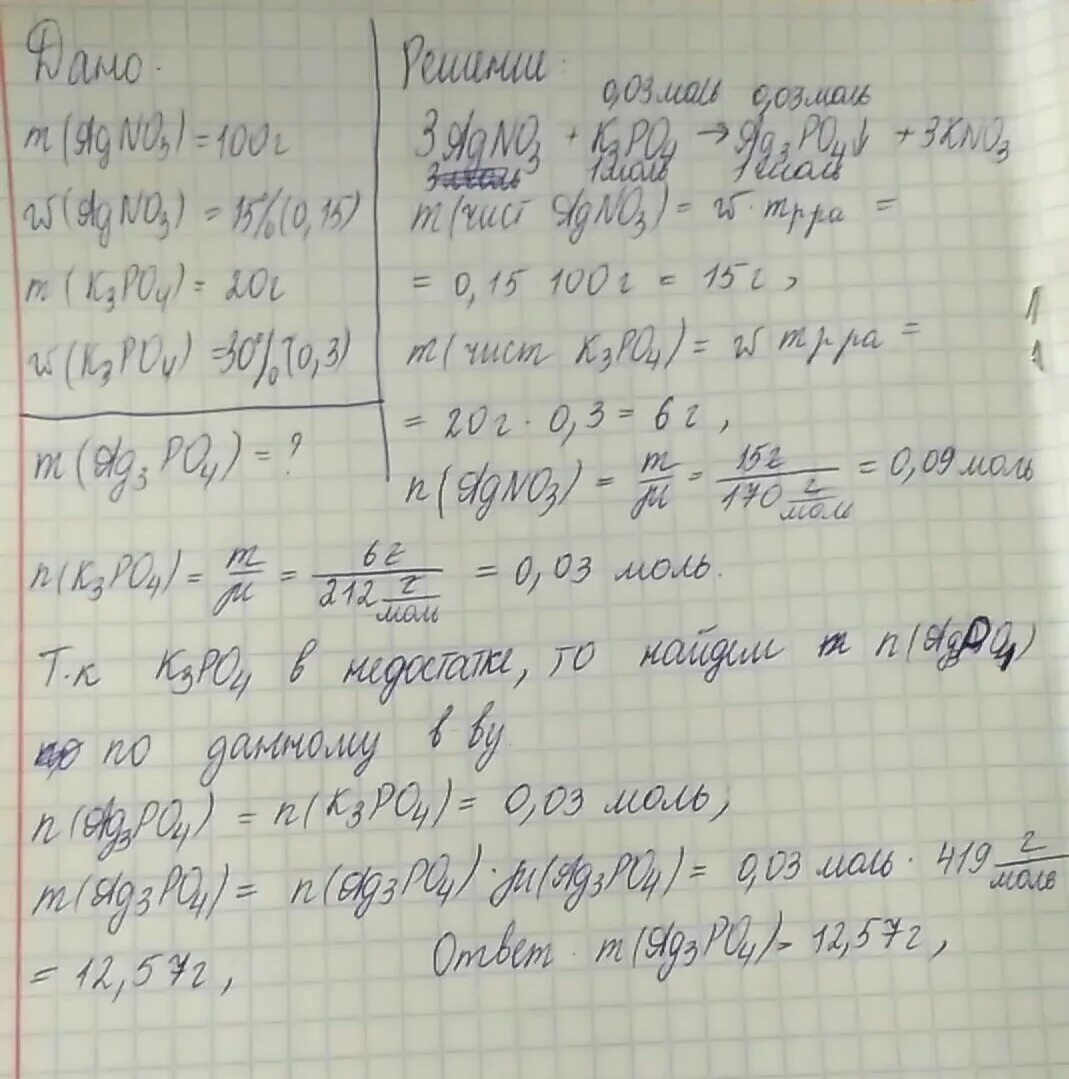 Дано:
m(AgNO3) = 100г
w(AgNO3) = 15%(0,15)
m(K3PO4) = 20г
w(K3PO4) = 30%(0,3)
m(Ag3PO4) = ?
Решение:
0,03моль 0,03моль
3AgNO3 + K3PO4 → Ag3PO4↓ + 3KNO3
1моль 1моль
m(чист AgNO3) = w · mр-ра =
= 0,15 100г = 15г,
m(чист K3PO4) = w mр-ра =
= 20г · 0,3 = 6г,
n(AgNO3) = m/μ = 15г/170 г/моль = 0,09 моль
n(K3PO4) = m/μ = 6г/212 г/моль = 0,03 моль.
Т.к K3PO4 в недостатке, то найдем m n(Ag3PO4)
по данному в-ву
n(Ag3PO4) = n(K3PO4) = 0,03 моль,
m(Ag3PO4) = n(Ag3PO4) · μ(Ag3PO4) = 0,03 моль · 419 г/моль
= 12,57г,
Ответ · m(Ag3PO4) = 12,57г,